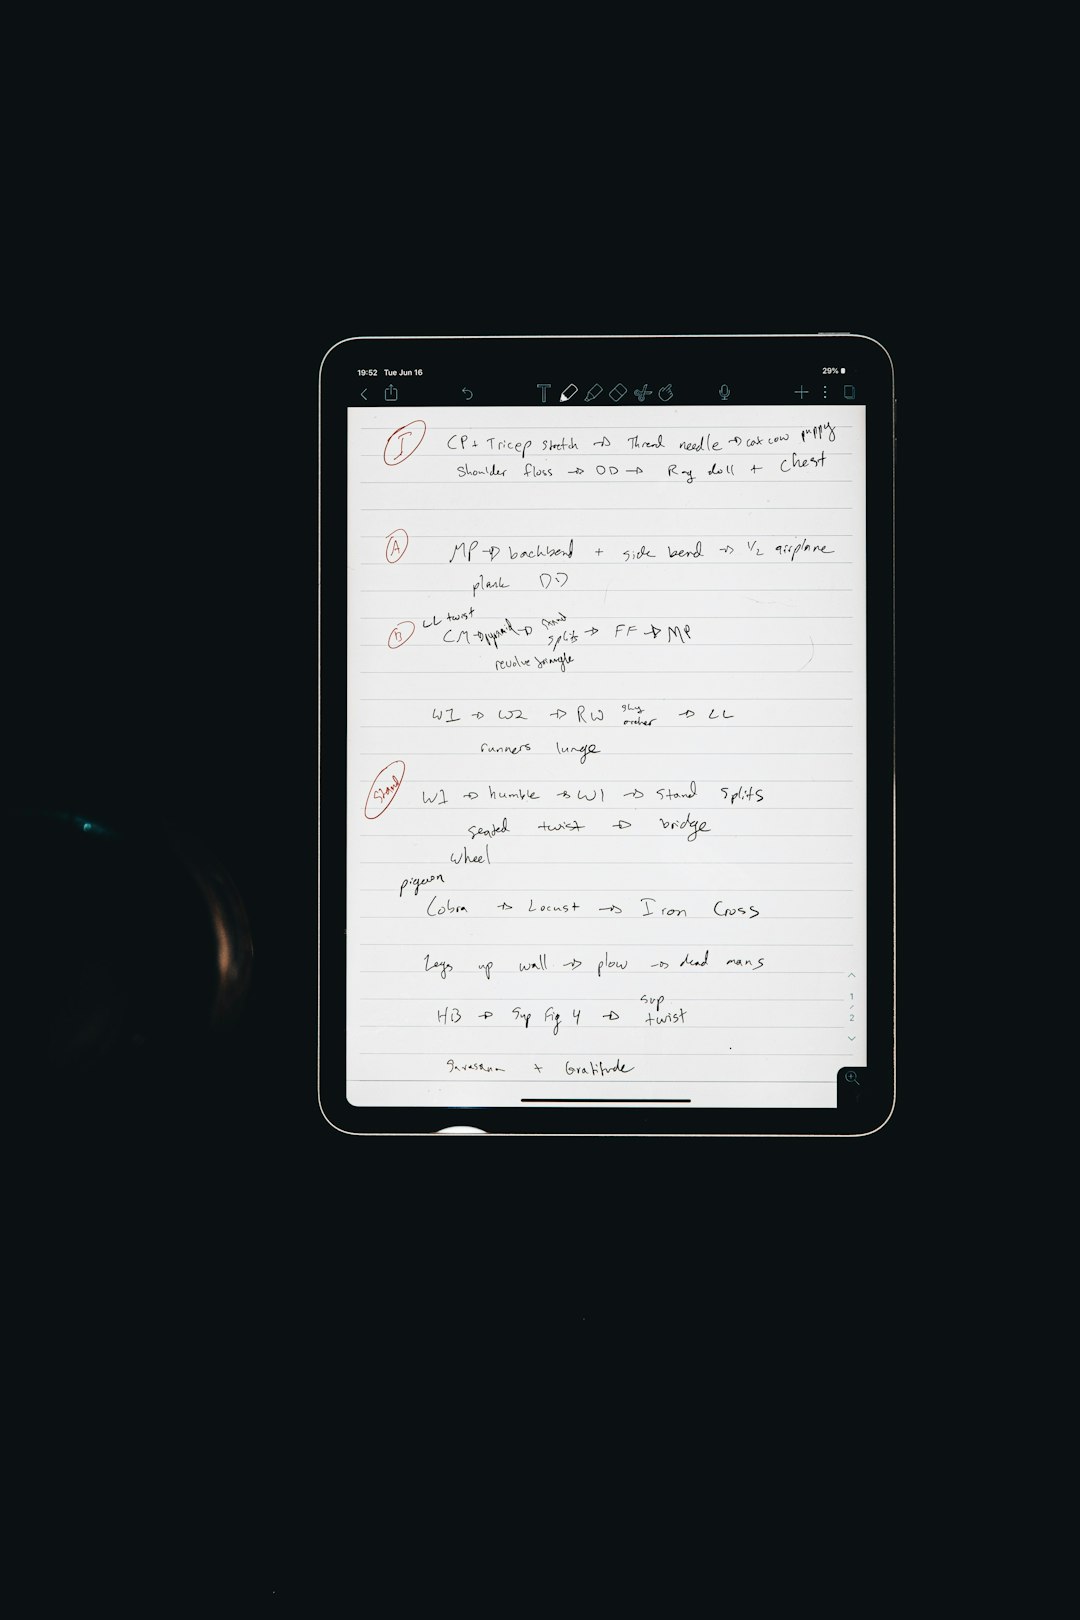 19:52 Tue Jun 16 29%
I CP + Tricep stretch → Thread needle → cat cow puppy
Shoulder floss → DD → Rag doll + Chest
A MP → backbend + side bend → 1/2 airplane
plank DD
LL twist
B CM → pyramid → stand splits → FF → MP
revolve triangle
W1 → W2 → RW sky archer → LL
runners lunge
Stand W1 → humble → W1 → Stand Splits
seated twist → bridge
wheel
pigeon
Cobra → Locust → Iron Cross
Legs up wall → plow → dead mans
HB → Sup Fig 4 → sup twist
Savasana + Gratitude
1
2